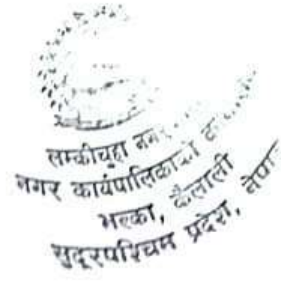 लम्कीचुहा नगर
नगर कार्यपालिकाको
भल्का, कैलाली
सुदूरपश्चिम प्रदेश, नेपा